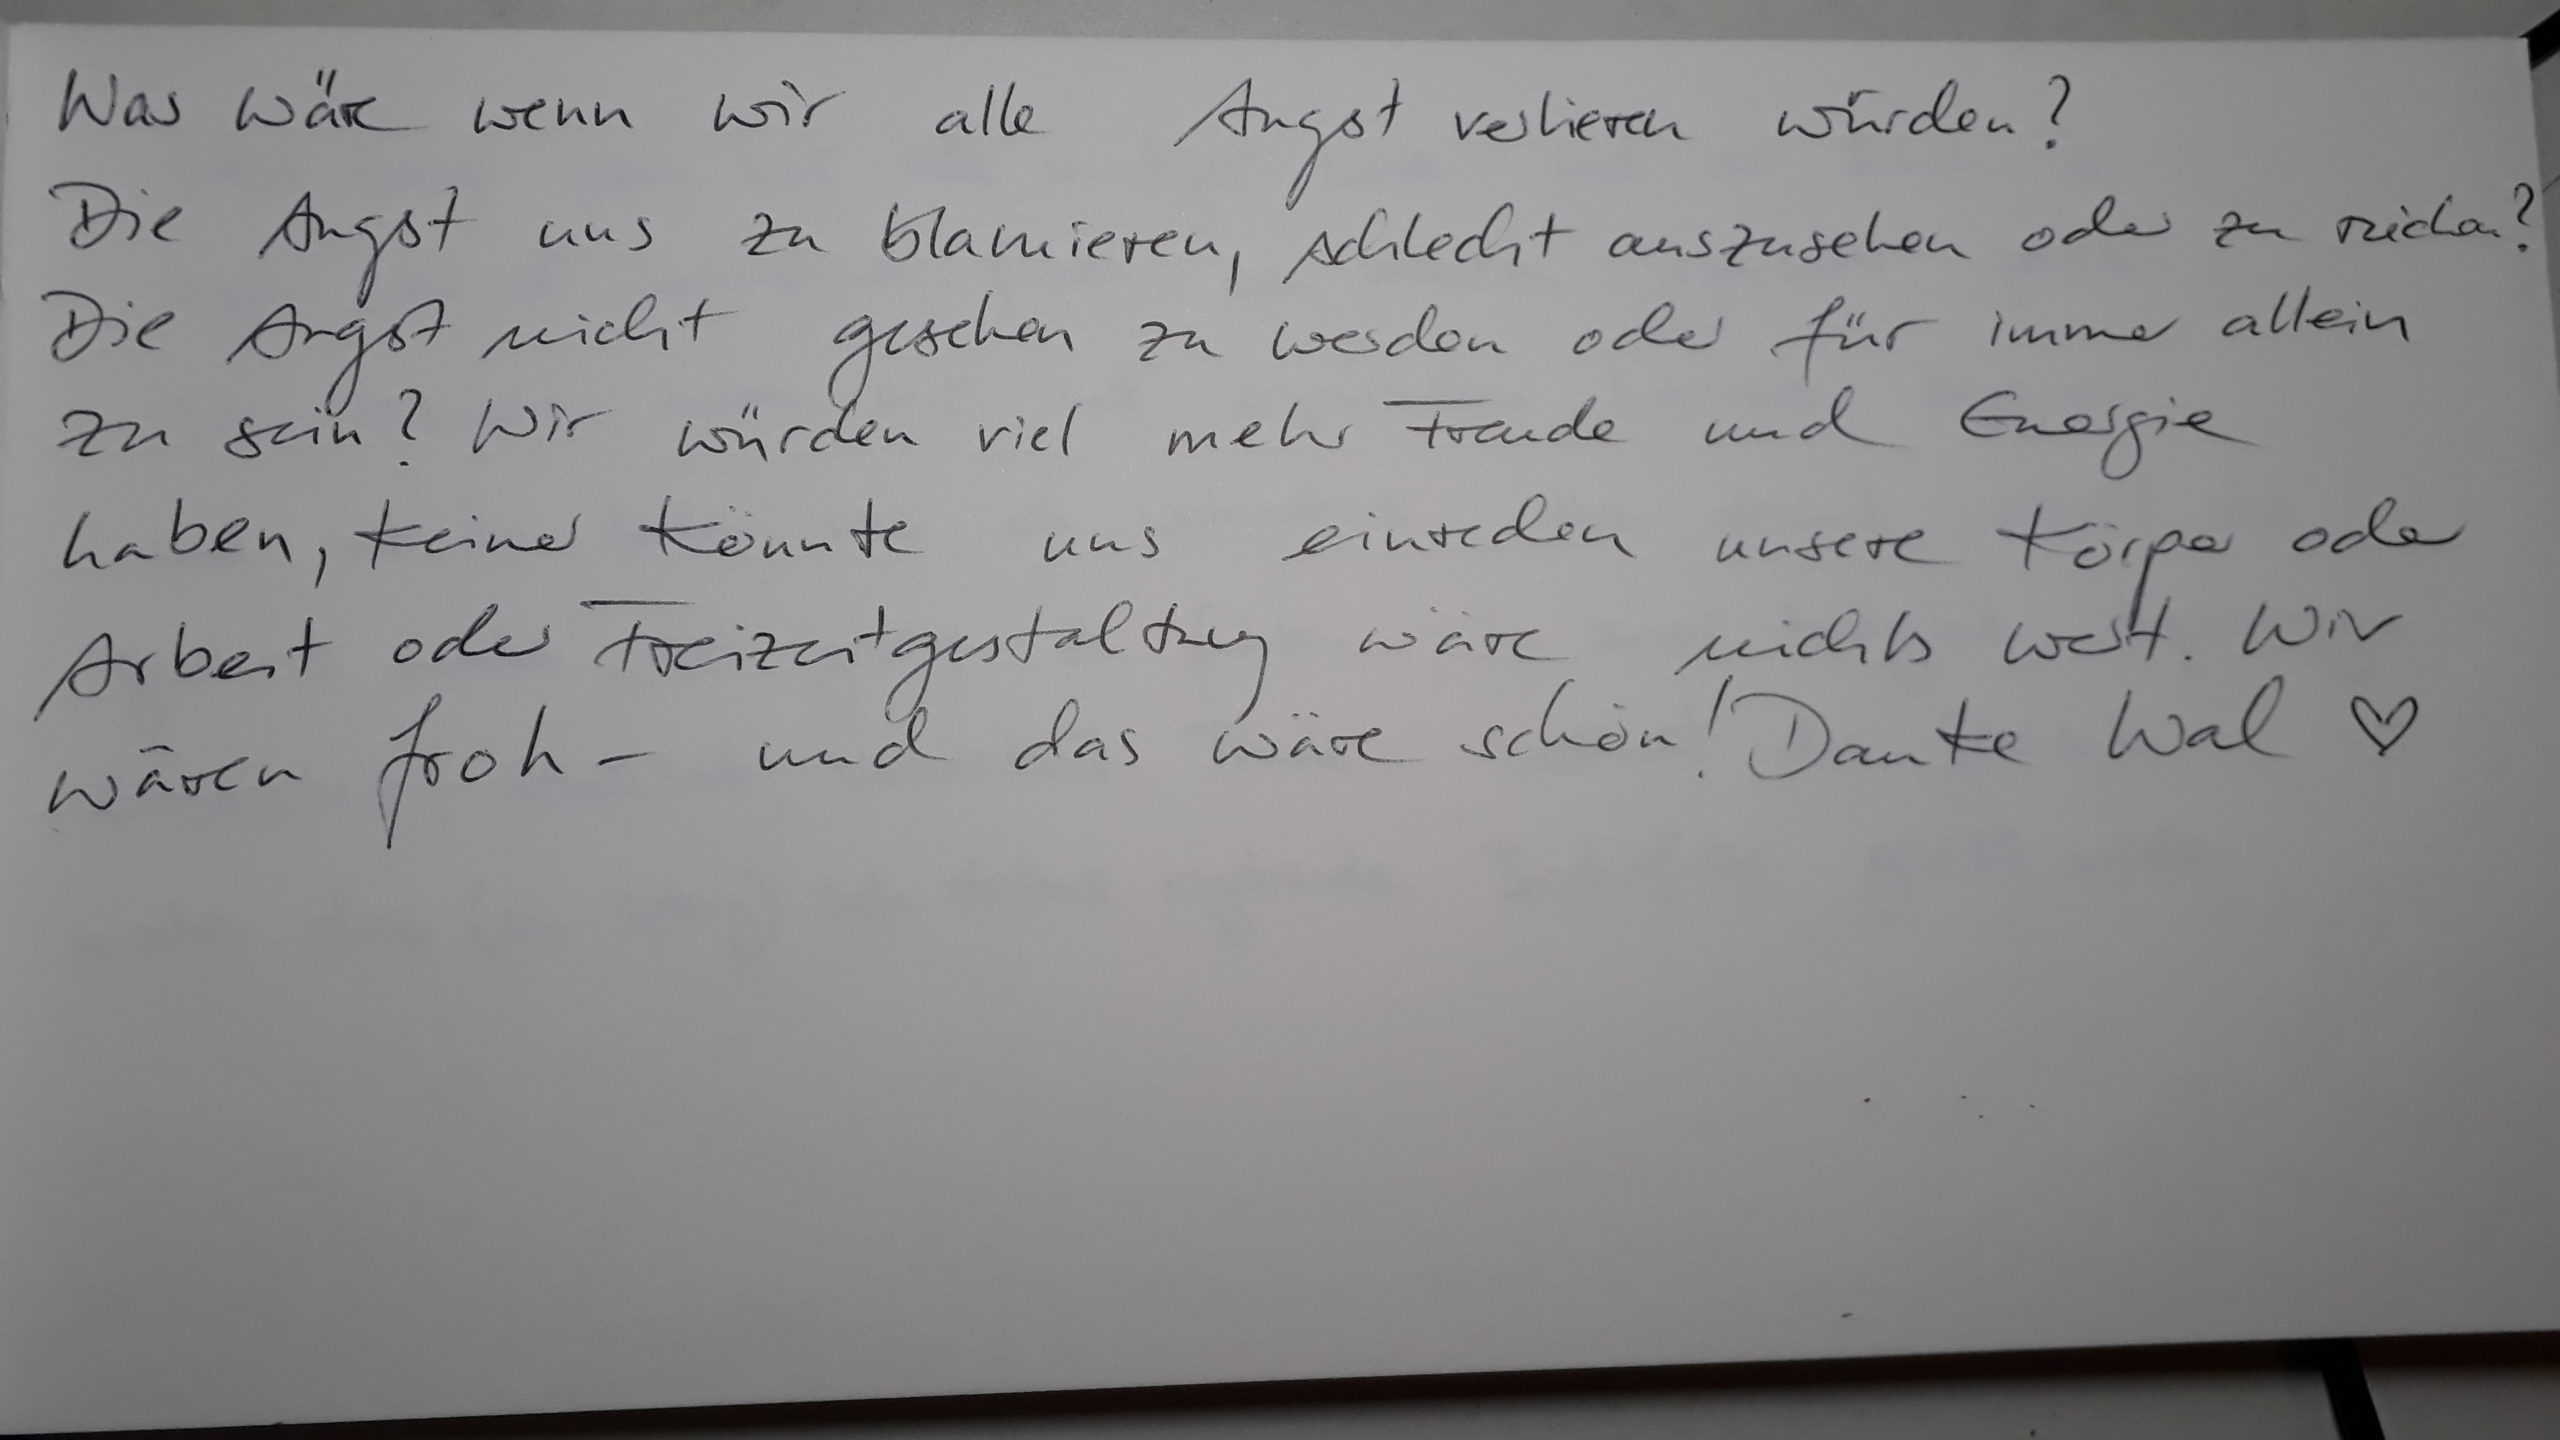 Was wäre wenn wir alle Angst verlieren würden?
Die Angst uns zu blamieren, schlecht auszusehen oder zu riechen?
Die Angst nicht gesehen zu werden oder für immer allein
zu sein? Wir würden viel mehr Freude und Energie
haben, keiner könnte uns einreden unsere Körper oder
Arbeit oder Freizeitgestaltung wäre nichts wert. Wir
wären froh – und das wäre schön! Danke Wal ♡